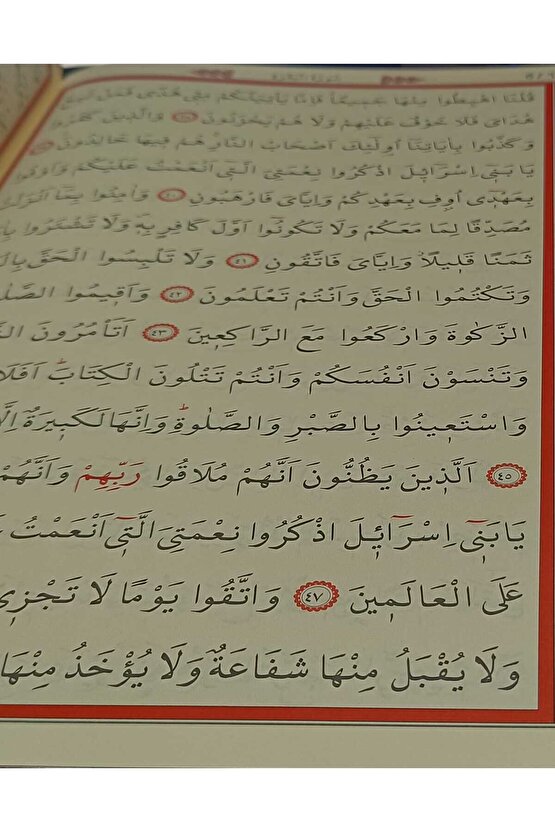 سورة البقرة
قُلْنَا اهْبِطُوا مِنْهَا جَمِيعًا فَاِمَّا يَأْتِيَنَّكُمْ مِنّٖى هُدًى فَمَنْ تَبِعَ
هُدَاىَ فَلَا خَوْفٌ عَلَيْهِمْ وَلَا هُمْ يَحْزَنُونَ ٣٨ وَالَّذٖينَ كَفَرُوا
وَكَذَّبُوا بِاٰيَاتِنَا اُولٰٓئِكَ اَصْحَابُ النَّارِ هُمْ فٖيهَا خَالِدُونَ
يَا بَنٖٓى اِسْرَآٖئلَ اذْكُرُوا نِعْمَتِىَ الَّتٖٓى اَنْعَمْتُ عَلَيْكُمْ وَاَوْفُوا
بِعَهْدٖٓى اُوفِ بِعَهْدِكُمْ وَاِيَّاىَ فَارْهَبُونِ ٤٠ وَاٰمِنُوا بِمَٓا اَنْزَلْتُ
مُصَدِّقًا لِمَا مَعَكُمْ وَلَا تَكُونُٓوا اَوَّلَ كَافِرٍ بِهٖ وَلَا تَشْتَرُوا
ثَمَنًا قَلٖيلًا وَاِيَّاىَ فَاتَّقُونِ ٤١ وَلَا تَلْبِسُوا الْحَقَّ
وَتَكْتُمُوا الْحَقَّ وَاَنْتُمْ تَعْلَمُونَ ٤٢ وَاَقٖيمُوا
الزَّكٰوةَ وَارْكَعُوا مَعَ الرَّاكِعٖينَ ٤٣ اَتَأْمُرُونَ
وَتَنْسَوْنَ اَنْفُسَكُمْ وَاَنْتُمْ تَتْلُونَ الْكِتَابَ اَفَلَا
وَاسْتَعٖينُوا بِالصَّبْرِ وَالصَّلٰوةِ وَاِنَّهَا لَكَبٖيرَةٌ
٤٥ اَلَّذٖينَ يَظُنُّونَ اَنَّهُمْ مُلَاقُوا رَبِّهِمْ وَاَنَّهُمْ
يَا بَنٖٓى اِسْرَآٖئلَ اذْكُرُوا نِعْمَتِىَ الَّتٖٓى اَنْعَمْتُ
عَلَى الْعَالَمٖينَ ٤٧ وَاتَّقُوا يَوْمًا لَا تَجْزٖى
وَلَا يُقْبَلُ مِنْهَا شَفَاعَةٌ وَلَا يُؤْخَذُ مِنْهَا